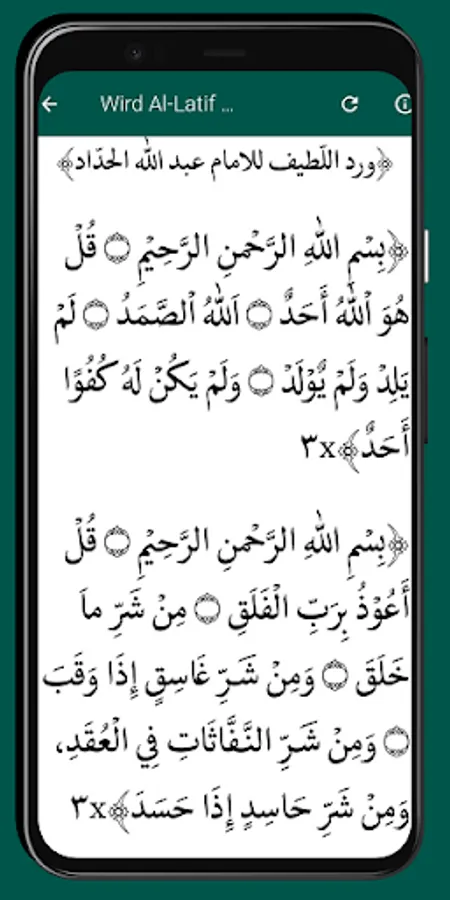 Wird Al-Latif ...
﴿ورد اللّطيف للامام عبد الله الحدّاد﴾
﴿بِسْمِ اللهِ الرَّحْمنِ الرَّحِيْمِ ۝ قُلْ
هُوَ ٱللهُ أَحَدٌ ۝ اَللهُ ٱلصَّمَدُ ۝ لَمْ
يَلِدْ وَلَمْ يُوْلَدْ ۝ وَلَمْ يَكُنْ لَهُ كُفُوًا
أَحَدٌ﴾٣x
﴿بِسْمِ اللهِ الرَّحْمنِ الرَّحِيْمِ ۝ قُلْ
أَعُوْذُ بِرَبِّ الْفَلَقِ ۝ مِنْ شَرِّ ماَ
خَلَقَ ۝ وَمِنْ شَرِّ غَاسِقٍ إِذَا وَقَبَ
۝ وَمِنْ شَرِّ النَّفَّاثَاتِ فِي الْعُقَدِ،
وَمِنْ شَرِّ حَاسِدٍ إِذَا حَسَدَ﴾٣x